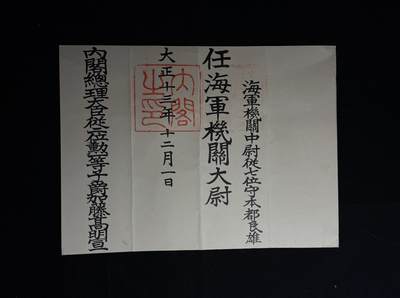 海軍機關中尉從七位守本都良雄
任海軍機關大尉
大正十三年十二月一日
内閣之印
内閣總理大臣從二位勳一等子爵加藤高明宣